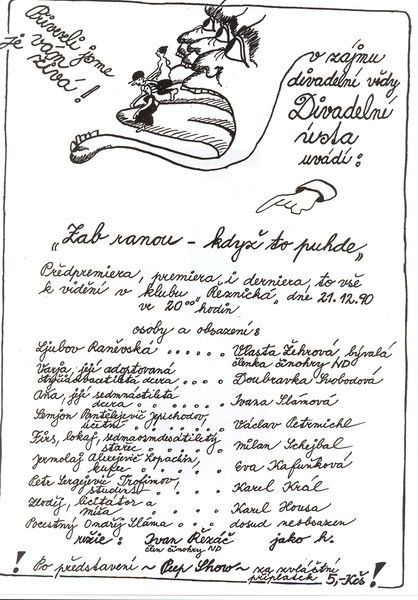 Přivezli jsme
je vám
živá!
v zájmu
divadelní vědy
Divadelní
ústa
uvádí:
"Zab ranou - když to puhde"
Předpremiera, premiera i derniera, to vše
k vidění v klubu "Řeznická" dne 21.12.90
ve 20⁰⁰ hodin.
osoby a obsazení:
Ljubov Raněvská . . . . . . Vlasta Žehrová, bývalá
členka činohry ND
Varja, její adoptovaná
čtyřiadvacetiletá dcera . . . . Doubravka Svobodová
Aňa, její sedmnáctiletá
dcera . . . . Ivana Slámová
Semjon Pantělejevič Jepichodov,
účetní . . . . . Václav Petrmichl
Firs, lokaj, sedmaosmdesátiletý
stařec . . . . . Milan Schejbal
Jermolaj Alexejevič Lopachin,
kupec . . . . Eva Kafuňková
Petr Sergejevič Trofimov,
student . . . . Karel Král
Zloděj, licitátor a
. . . . Karel Housa
Poctivý Ondřej Sláma . . . dosud neobsazen
režie: Ivan Řezáč jako h.
člen činohry ND
! Po představení ~ Peep Show ~ za zvláštní
příplatek 5,-Kčs !